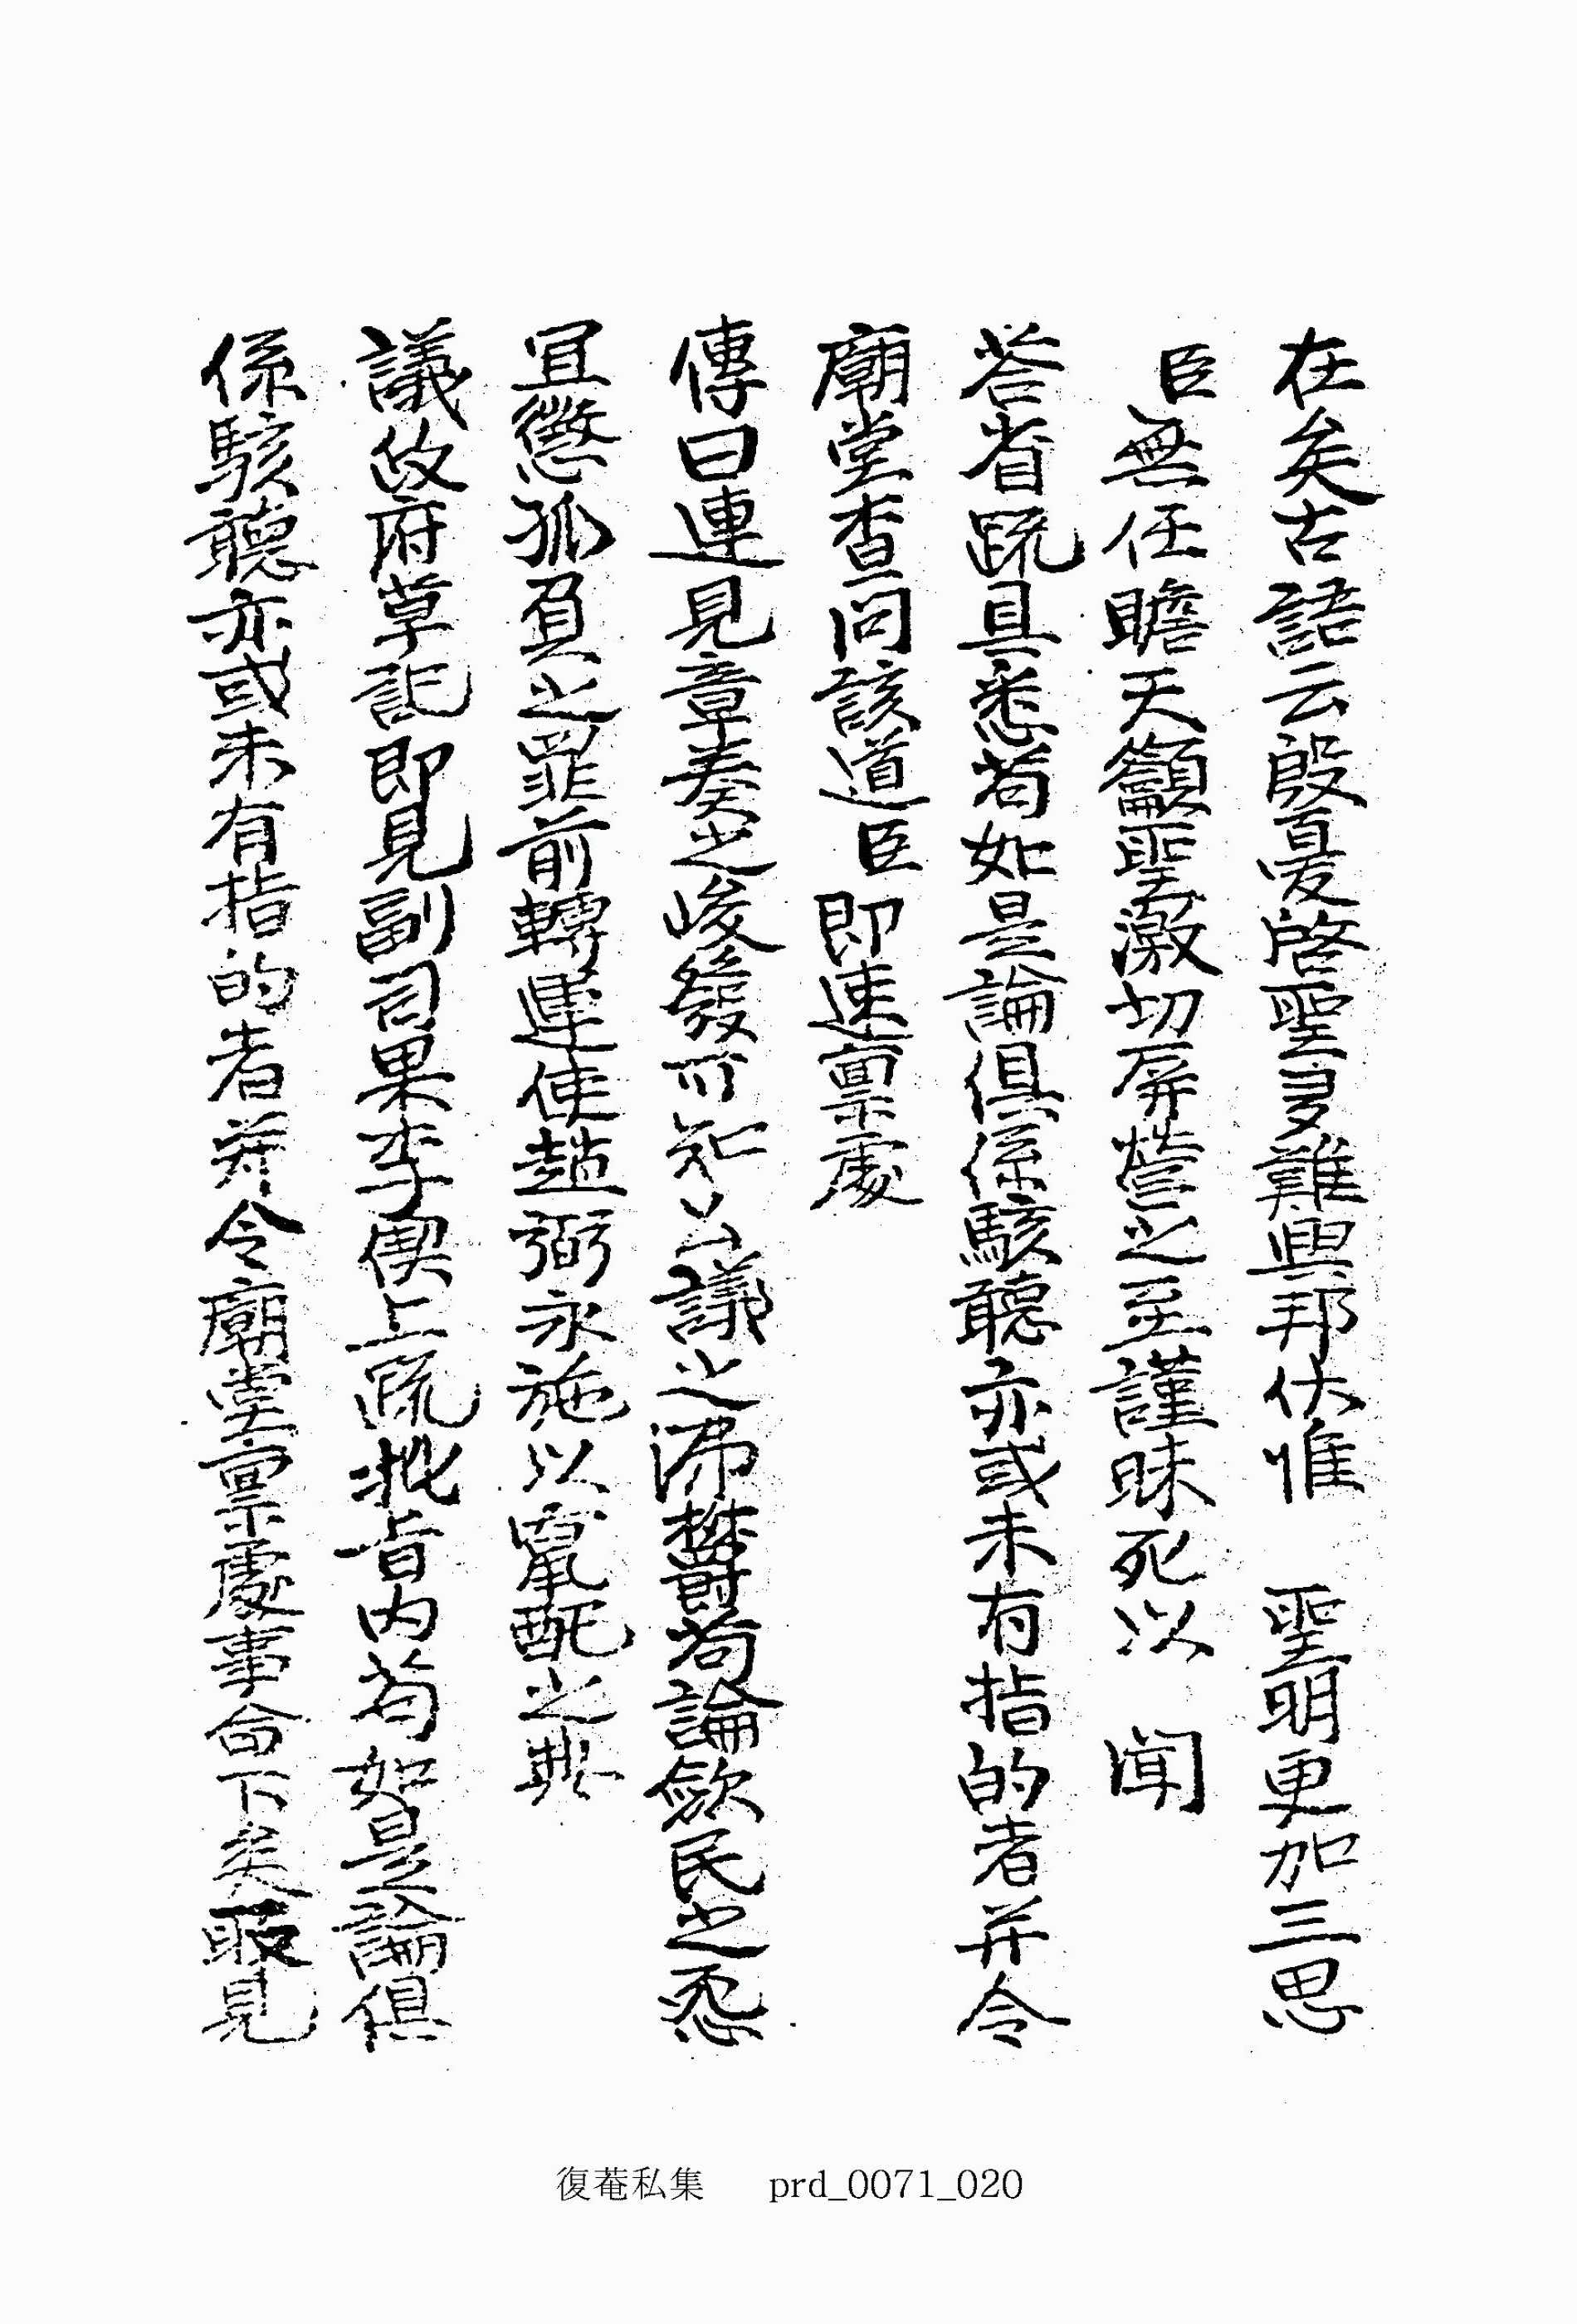 在矣古語云殷憂啓聖多難興邦伏惟 聖明更加三思
臣無任瞻天籲聖激切屏營之至謹昧死以 聞
答省疏具悉苟如是論俱係駭聽亦或未有指的者并令
廟堂查問該道臣卽速稟處
傳曰連見章奏之峻發可知公議之沸欝苟論斂民之怨
宜懲孤負之罪前轉運使趙弼永施以竄配之典
議政府草記卽見副司果李偰上疏批旨內苟如是論俱
係駭聽亦或未有指的者幷令廟堂稟處事命下矣取見
復菴私集 prd_0071_020